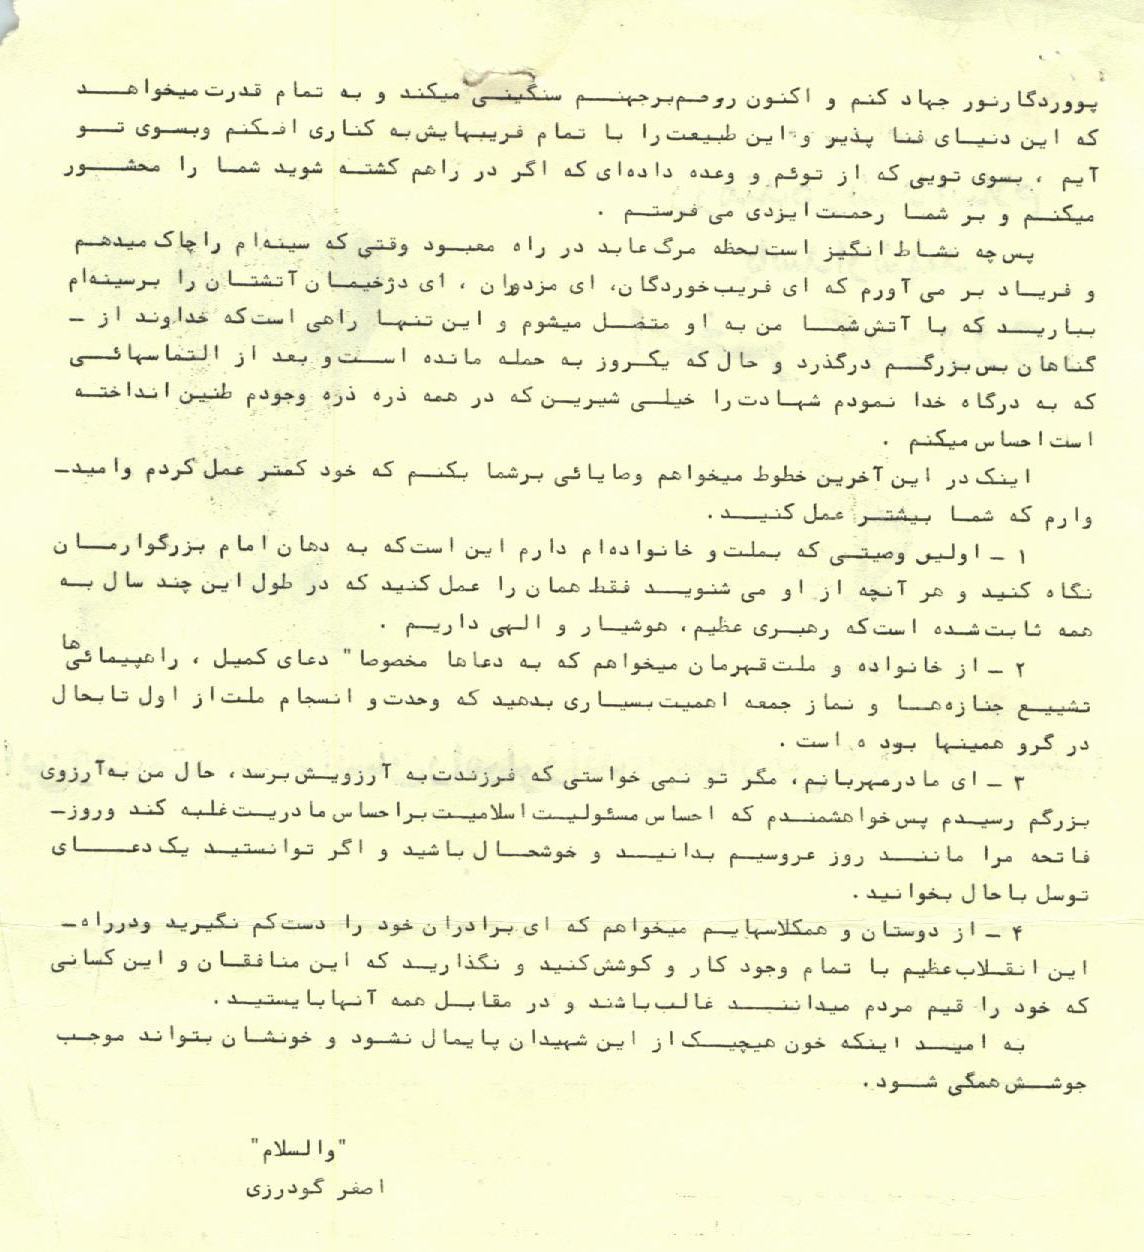 پووردگارنور جهاد کنم و اکنون روحم‌برجهنم سنگینی میکند و به تمام قدرت میخواهد
که این دنیای فنا پذیر و این طبیعت را با تمام فریبهایش به کناری افکنم وبسوی تو
آیم ، بسوی تویی که از توئم و وعده داده‌ای که اگر در راهم کشته شوید شما را محشور
میکنم و بر شما رحمت ایزدی می فرستم .
پس چه نشاط انگیز است لحظه مرگ عابد در راه معبود وقتی که سینه‌ام را چاک میدهم
و فریاد بر می آورم که ای فریب خوردگان، ای مزدوران ، ای دژخیمان آتشتان را برسینه‌ام
ببارید که با آتش شما من به او متصل میشوم و این تنها راهی است که خداوند از ـ
گناهان بس بزرگم درگذرد و حال که یکروز به حمله مانده است و بعد از التماسهائی
که به درگاه خدا نمودم شهادت را خیلی شیرین که در همه ذره ذره وجودم طنین انداخته
است احساس میکنم .
اینک در این آخرین خطوط میخواهم وصایائی برشما بکنم که خود کمتر عمل کردم و امید ـ
وارم که شما بیشتر عمل کنید .
۱ ـ اولین وصیتی که بملت و خانواده‌ام دارم این است که به دهان امام بزرگوارمان
نگاه کنید و هر آنچه از او می شنوید فقط همان را عمل کنید که در طول این چند سال به
همه ثابت شده است که رهبری عظیم، هوشیار و الهی داریم .
۲ ـ از خانواده و ملت قهرمان میخواهم که به دعاها مخصوصا" دعای کمیل ، راهپیمائی‌ها
تشییع جنازه‌ها و نماز جمعه اهمیت بسیاری بدهید که وحدت و انسجام ملت از اول تا بحال
در گرو همینها بود ه است .
۳ ـ ای مادر مهربانم، مگر تو نمی خواستی که فرزندت به آرزویش برسد، حال من به آرزوی
بزرگم رسیدم پس خواهشمندم که احساس مسئولیت اسلامیت بر احساس مادریت غلبه کند وروز ـ
فاتحه مرا مانند روز عروسیم بدانید و خوشحال باشید و اگر توانستید یک دعای
توسل باحال بخوانید .
۴ ـ از دوستان و همکلاسهایم میخواهم که ای برادران خود را دست کم نگیرید ودرراه ـ
این انقلاب عظیم با تمام وجود کار و کوشش کنید و نگذارید که این منافقان و این کسانی
که خود را قیم مردم میدانند غالب باشند و در مقابل همه آنها بایستید .
به امید اینکه خون هیچیک از این شهیدان پایمال نشود و خونشان بتواند موجب
جوشش همگی شود .
"والسلام"
اصغر گودرزی